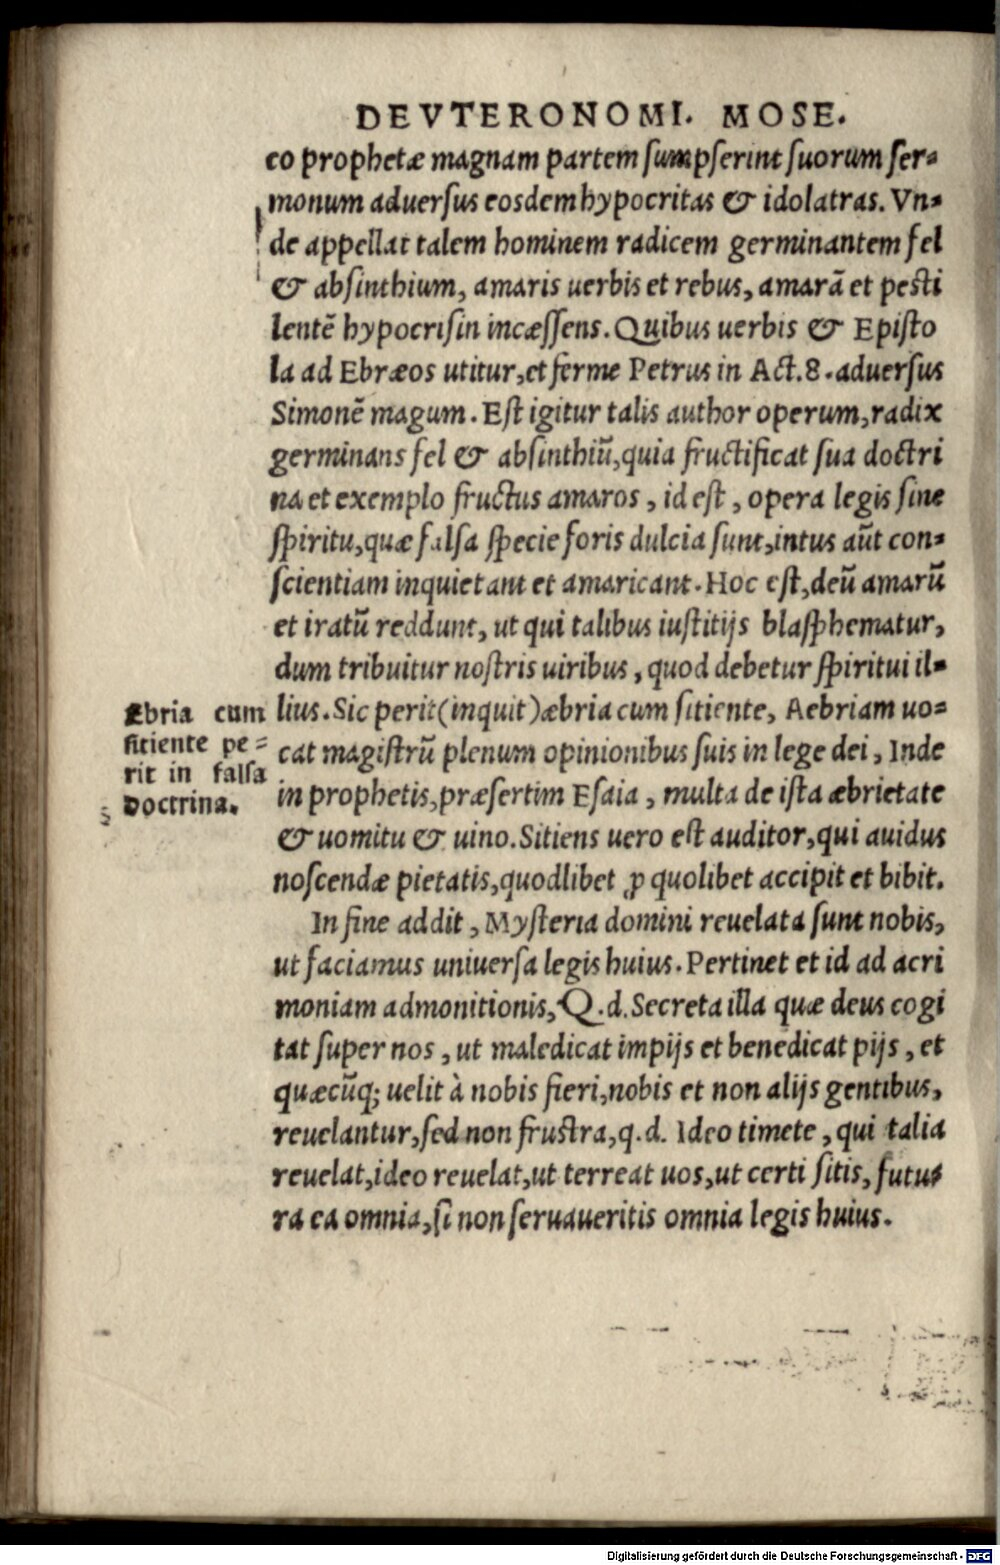 DEVTERONOMI. MOSE.
eo prophetæ magnam partem sumpserint suorum ser-
monum aduersus eosdem hypocritas & idolatras. Vn-
de appellat talem hominem radicem germinantem fel
& absinthium, amaris uerbis et rebus, amarã et pesti
lentẽ hypocrisin incæssens. Quibus uerbis & Episto
la ad Ebræos utitur, et ferme Petrus in Act. 8. aduersus
Simonẽ magum. Est igitur talis author operum, radix
germinans fel & absinthiũ, quia fructificat sua doctri
na et exemplo fructus amaros, id est, opera legis sine
spiritu, quæ falsa specie foris dulcia sunt, intus aũt con-
scientiam inquietant et amaricant. Hoc est, deũ amarũ
et iratũ reddunt, ut qui talibus iustitijs blasphematur,
dum tribuitur nostris uiribus, quod debetur spiritui il-
Æbria cum
sitiente pe-
rit in falsa
doctrina.
lius. Sic perit (inquit) æbria cum sitiente, Aebriam uo-
cat magistrũ plenum opinionibus suis in lege dei, Inde
in prophetis, præsertim Esaia, multa de ista æbrietate
& uomitu & uino. Sitiens uero est auditor, qui auidus
noscendæ pietatis, quodlibet ꝓ quolibet accipit et bibit.
In fine addit, Mysteria domini reuelata sunt nobis,
ut faciamus uniuersa legis huius. Pertinet et id ad acri
moniam admonitionis, Q. d. Secreta illa quæ deus cogi
tat super nos, ut maledicat impijs et benedicat pijs, et
quæcũq; uelit à nobis fieri, nobis et non alijs gentibus,
reuelantur, sed non frustra, q. d. Ideo timete, qui talia
reuelat, ideo reuelat, ut terreat uos, ut certi sitis, futu-
ra ea omnia, si non seruaueritis omnia legis huius.
Digitalisierung gefördert durch die Deutsche Forschungsgemeinschaft - DFG